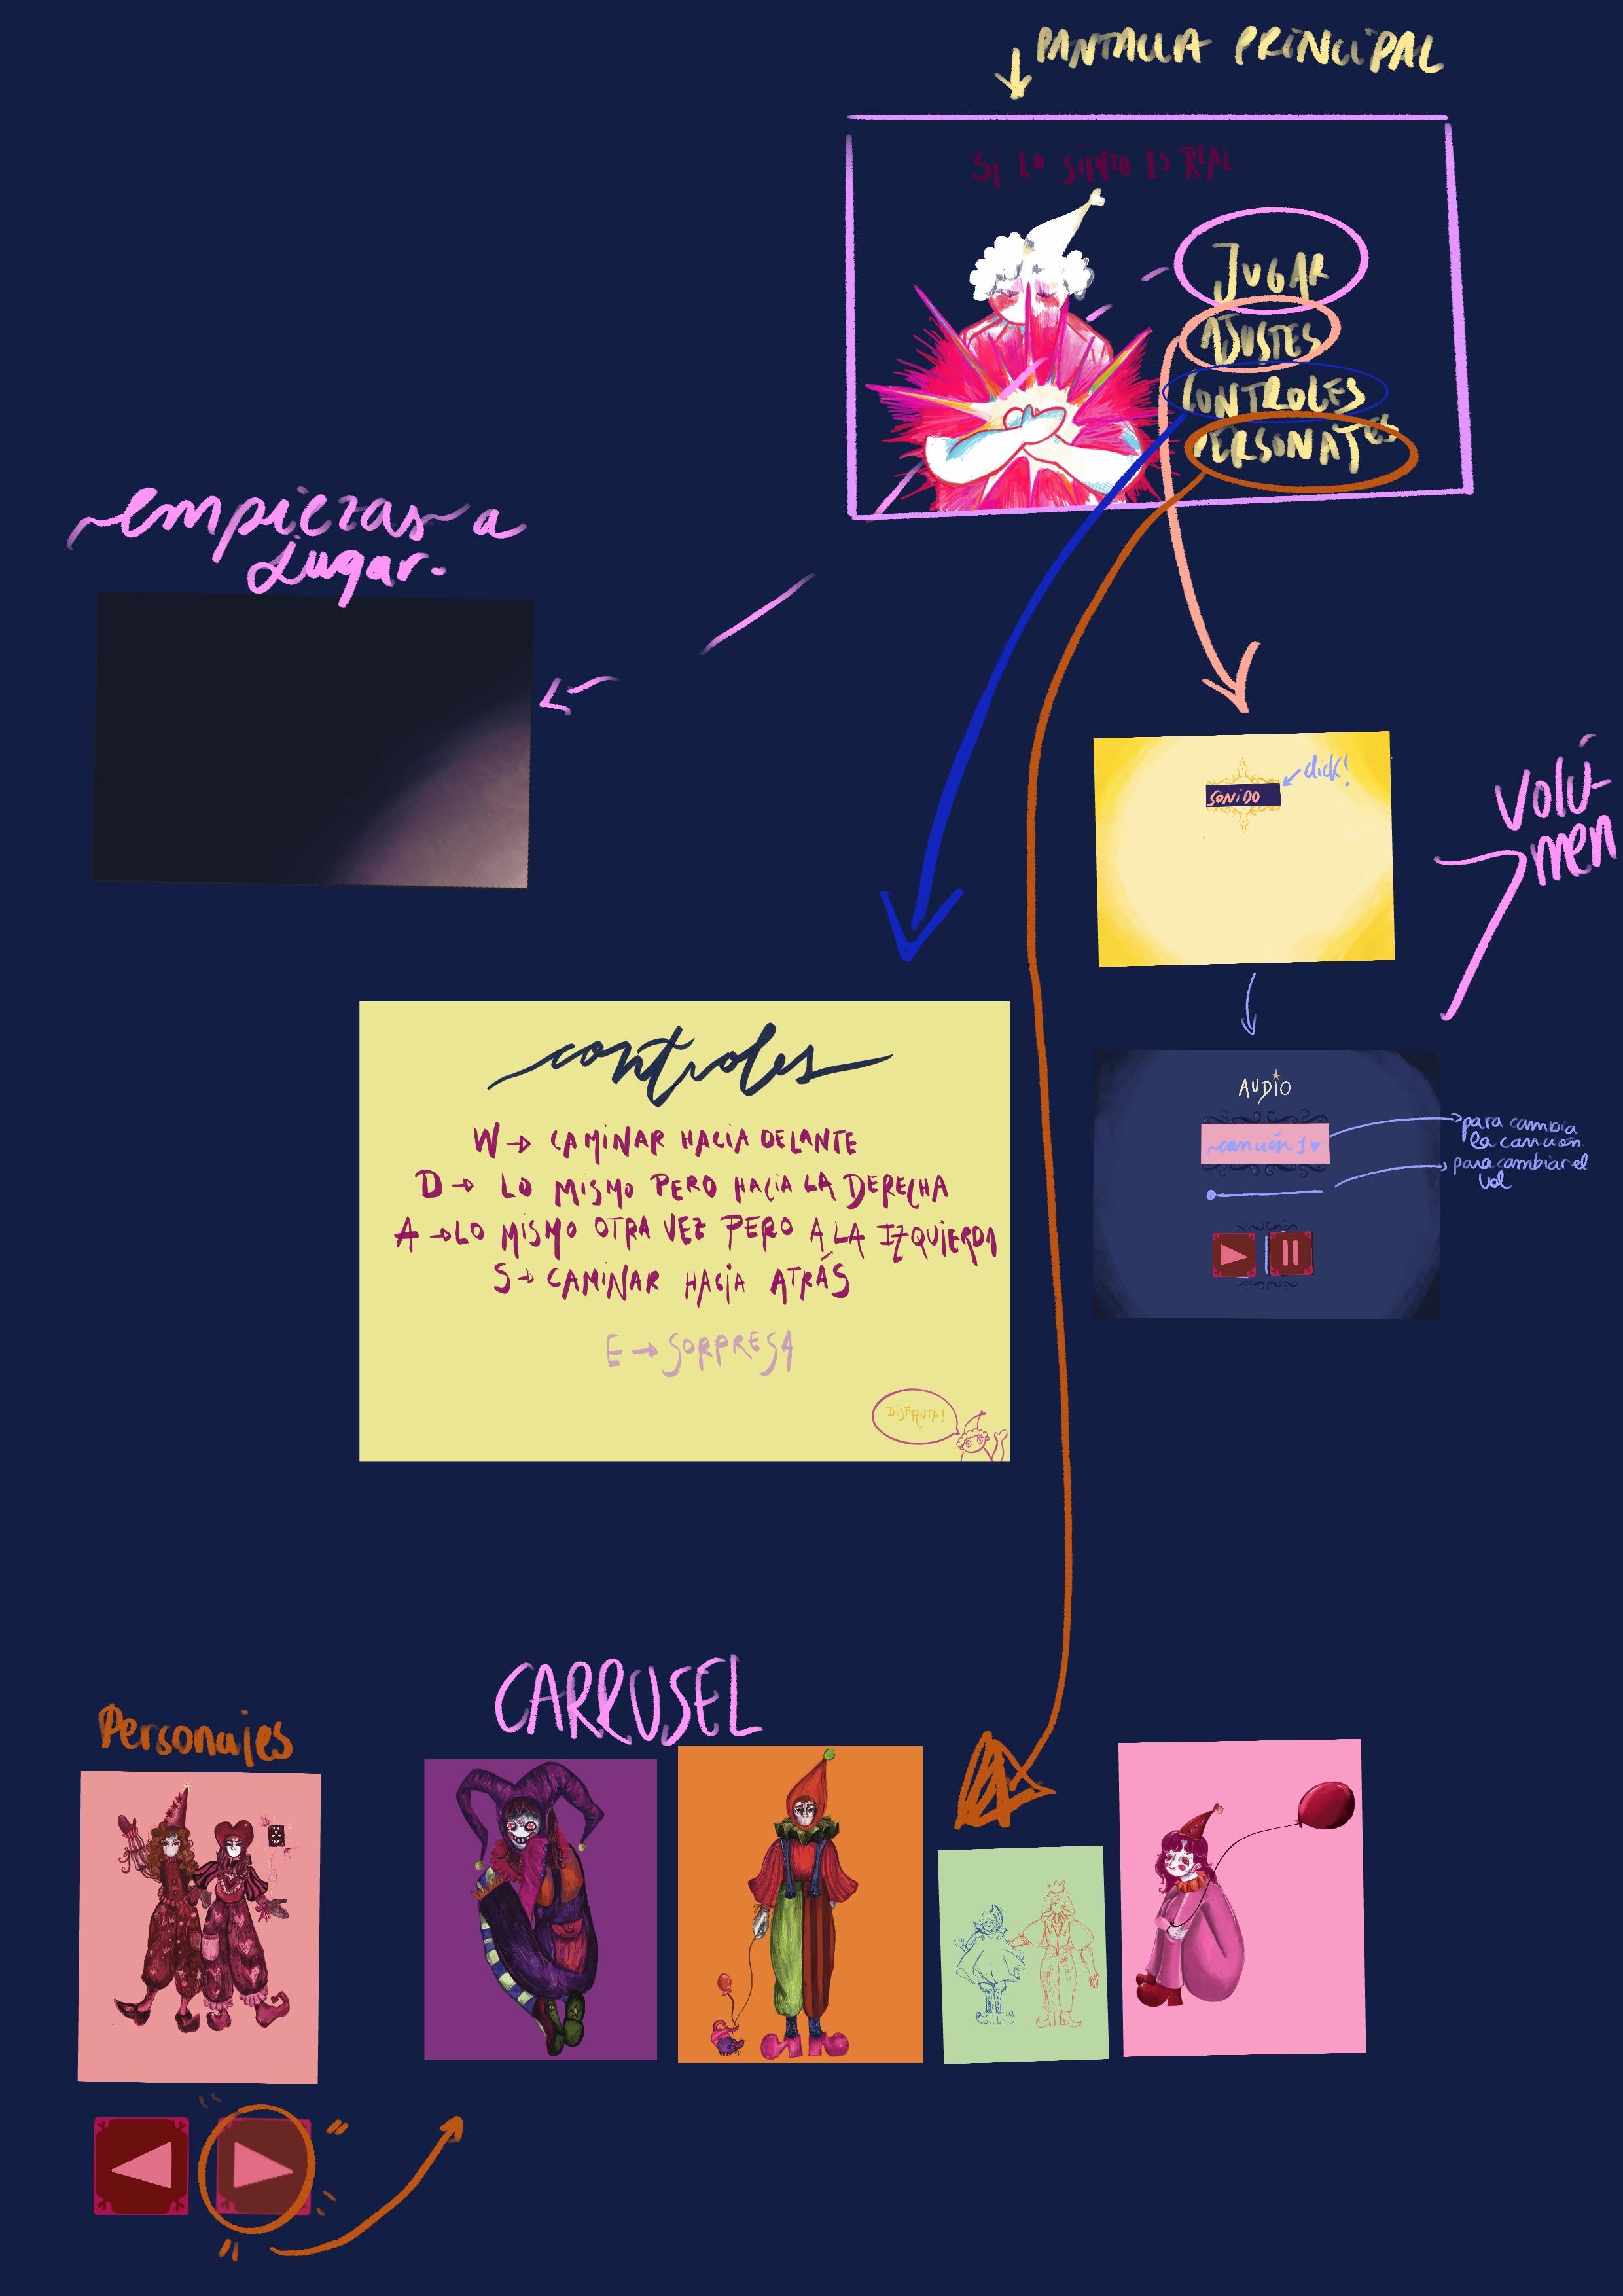 PANTALLA PRINCIPAL
Si LO SiENTO ES REAL
JUGAR
AJUSTES
CONTROLES
PERSONATES
empiezas a
jugar.
SONiDO
click!
Volú-
men
AUDiO
canción 1 ♥
para cambia
la canción.
para cambiar el
vol
controles
W → CAMiNAR HACiA DELANTE
D → LO MiSMO PERO HACiA LA DERECHA
A → LO MiSMO OTRA VEZ PERO A LA IZQUiERDA
S → CAMiNAR HACiA ATRÁS
E → SORPRESA
DiSFRUTA!
CARRUSEL
Personajes